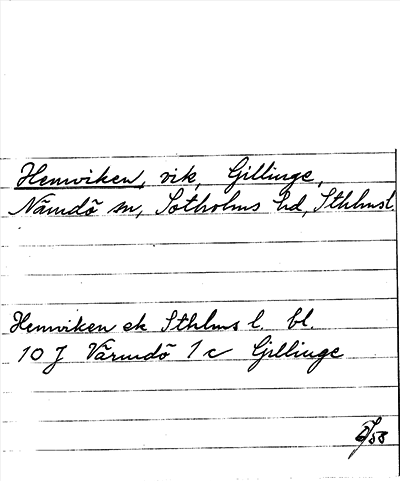 Hemviken, vik, Gillinge,
Nämdö sn, Sotholms hd, Sthlmsl.
Hemviken ek Sthlms l. bl.
10 J Värmdö 1 c Gillinge